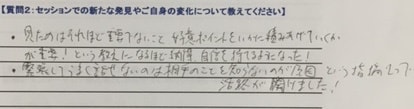 【質問2：セッションでの新たな発見やご自身の変化について教えてください】
・見ためはそれほど重要でないこと 得意ポイントをいかに積みあげていくか
が重要！という教えになるほど納得 自信を持てるようになった！
・緊張してうまく話せないのは相手のことを知らないのが原因 という指摘によって
活路が開けました！